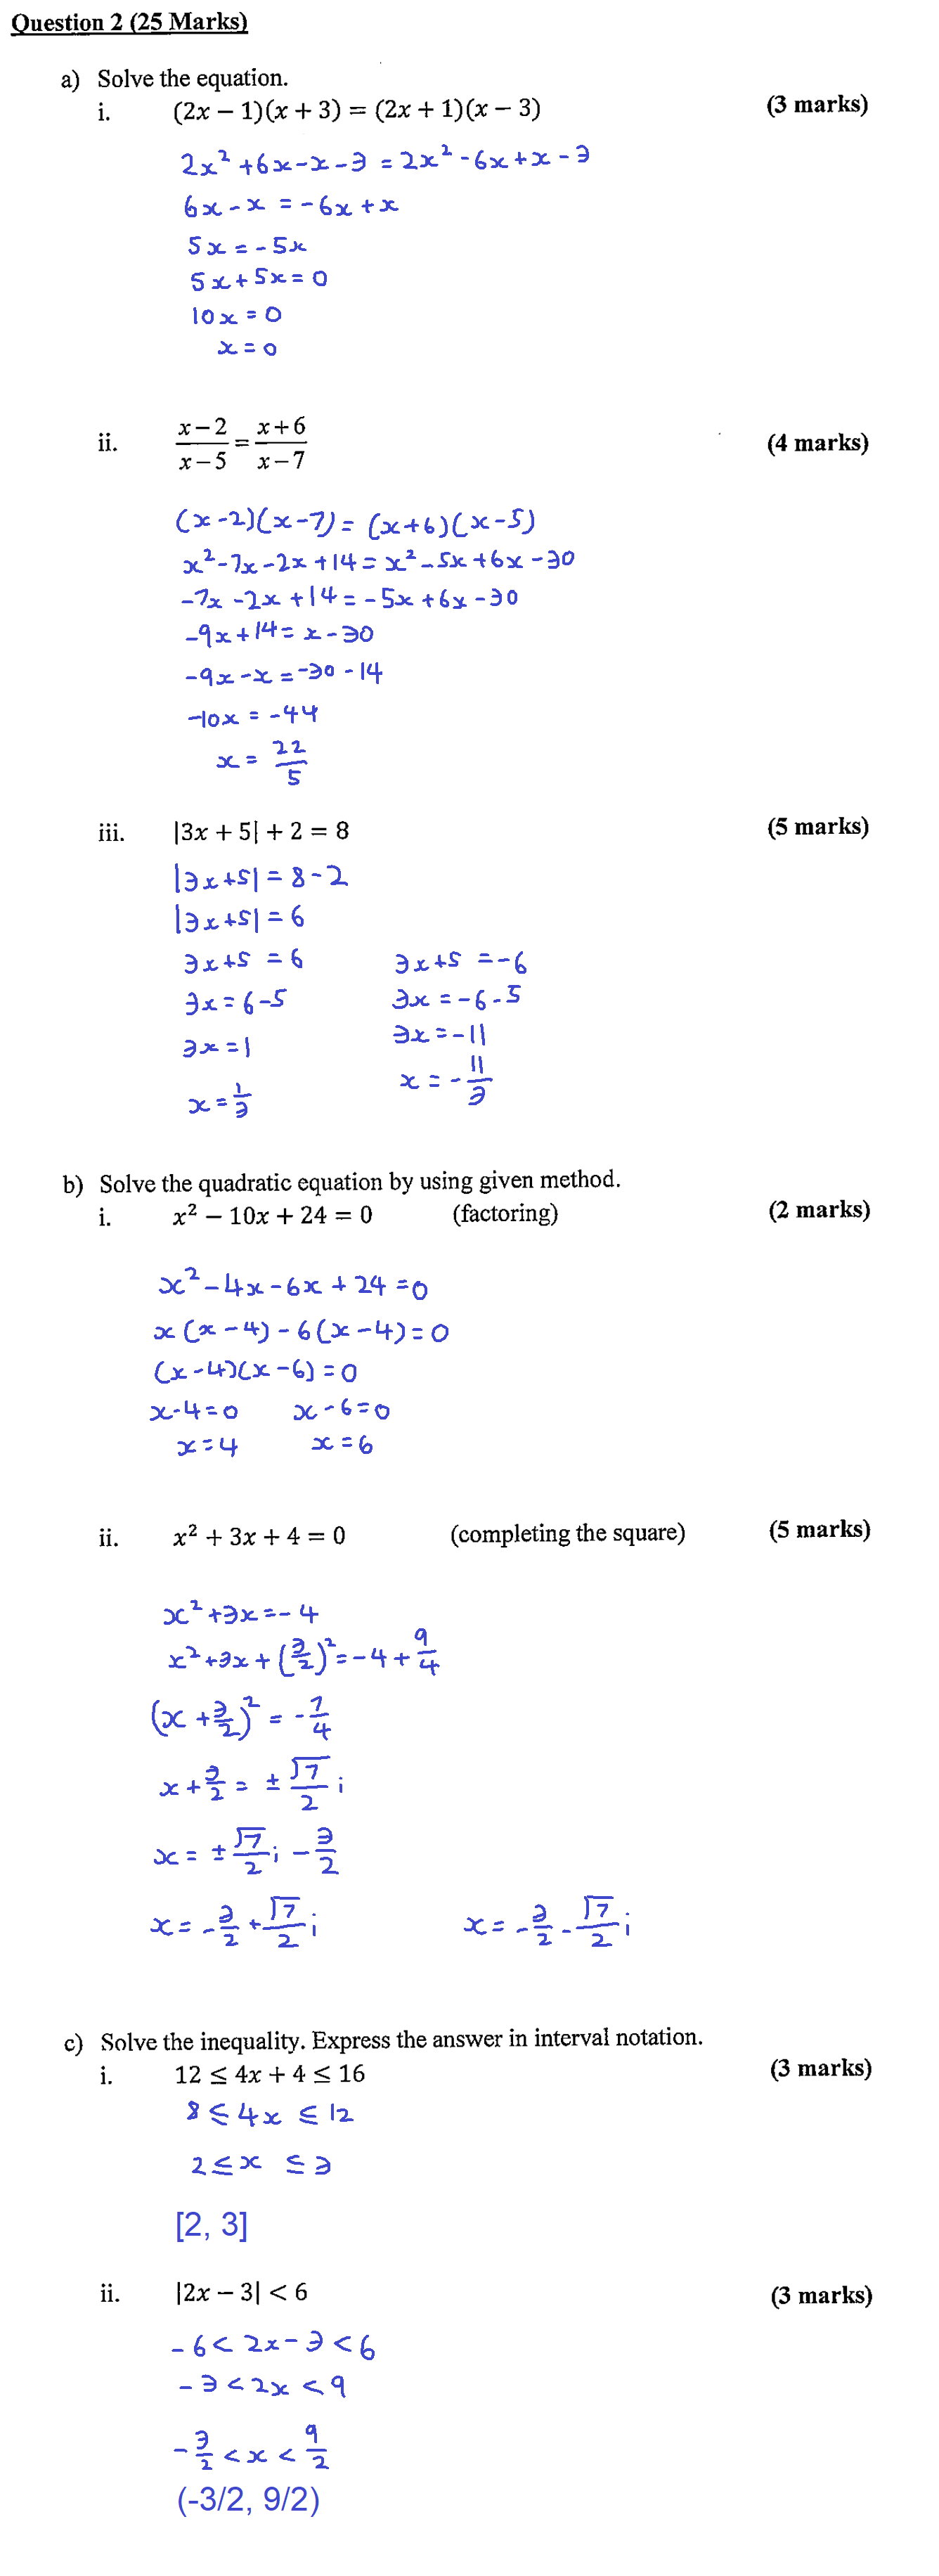 Question 2 (25 Marks)
a) Solve the equation.
i. (2x − 1)(x + 3) = (2x + 1)(x − 3) (3 marks)
2x² + 6x - x - 3 = 2x² - 6x + x - 3
6x - x = - 6x + x
5x = - 5x
5x + 5x = 0
10x = 0
x = 0
ii. (x−2)/(x−5) = (x+6)/(x−7) (4 marks)
(x-2)(x-7) = (x+6)(x-5)
x² - 7x - 2x + 14 = x² - 5x + 6x - 30
-7x - 2x + 14 = - 5x + 6x - 30
-9x + 14 = x - 30
-9x - x = -30 - 14
-10x = -44
x = 22/5
iii. |3x + 5| + 2 = 8 (5 marks)
|3x+5| = 8 - 2
|3x+5| = 6
3x+5 = 6 3x+5 = -6
3x = 6-5 3x = -6-5
3x = 1 3x = -11
x = 1/3 x = - 11/3
b) Solve the quadratic equation by using given method.
i. x² − 10x + 24 = 0 (factoring) (2 marks)
x² - 4x - 6x + 24 = 0
x(x-4) - 6(x-4) = 0
(x-4)(x-6) = 0
x-4=0 x-6=0
x=4 x=6
ii. x² + 3x + 4 = 0 (completing the square) (5 marks)
x² + 3x = -4
x² + 3x + (3/2)² = -4 + 9/4
(x + 3/2)² = - 7/4
x + 3/2 = ± √7/2 i
x = ± √7/2 i - 3/2
x = - 3/2 + √7/2 i x = - 3/2 - √7/2 i
c) Solve the inequality. Express the answer in interval notation.
i. 12 ≤ 4x + 4 ≤ 16 (3 marks)
8 ≤ 4x ≤ 12
2 ≤ x ≤ 3
[2, 3]
ii. |2x − 3| < 6 (3 marks)
-6 < 2x - 3 < 6
-3 < 2x < 9
- 3/2 < x < 9/2
(-3/2, 9/2)